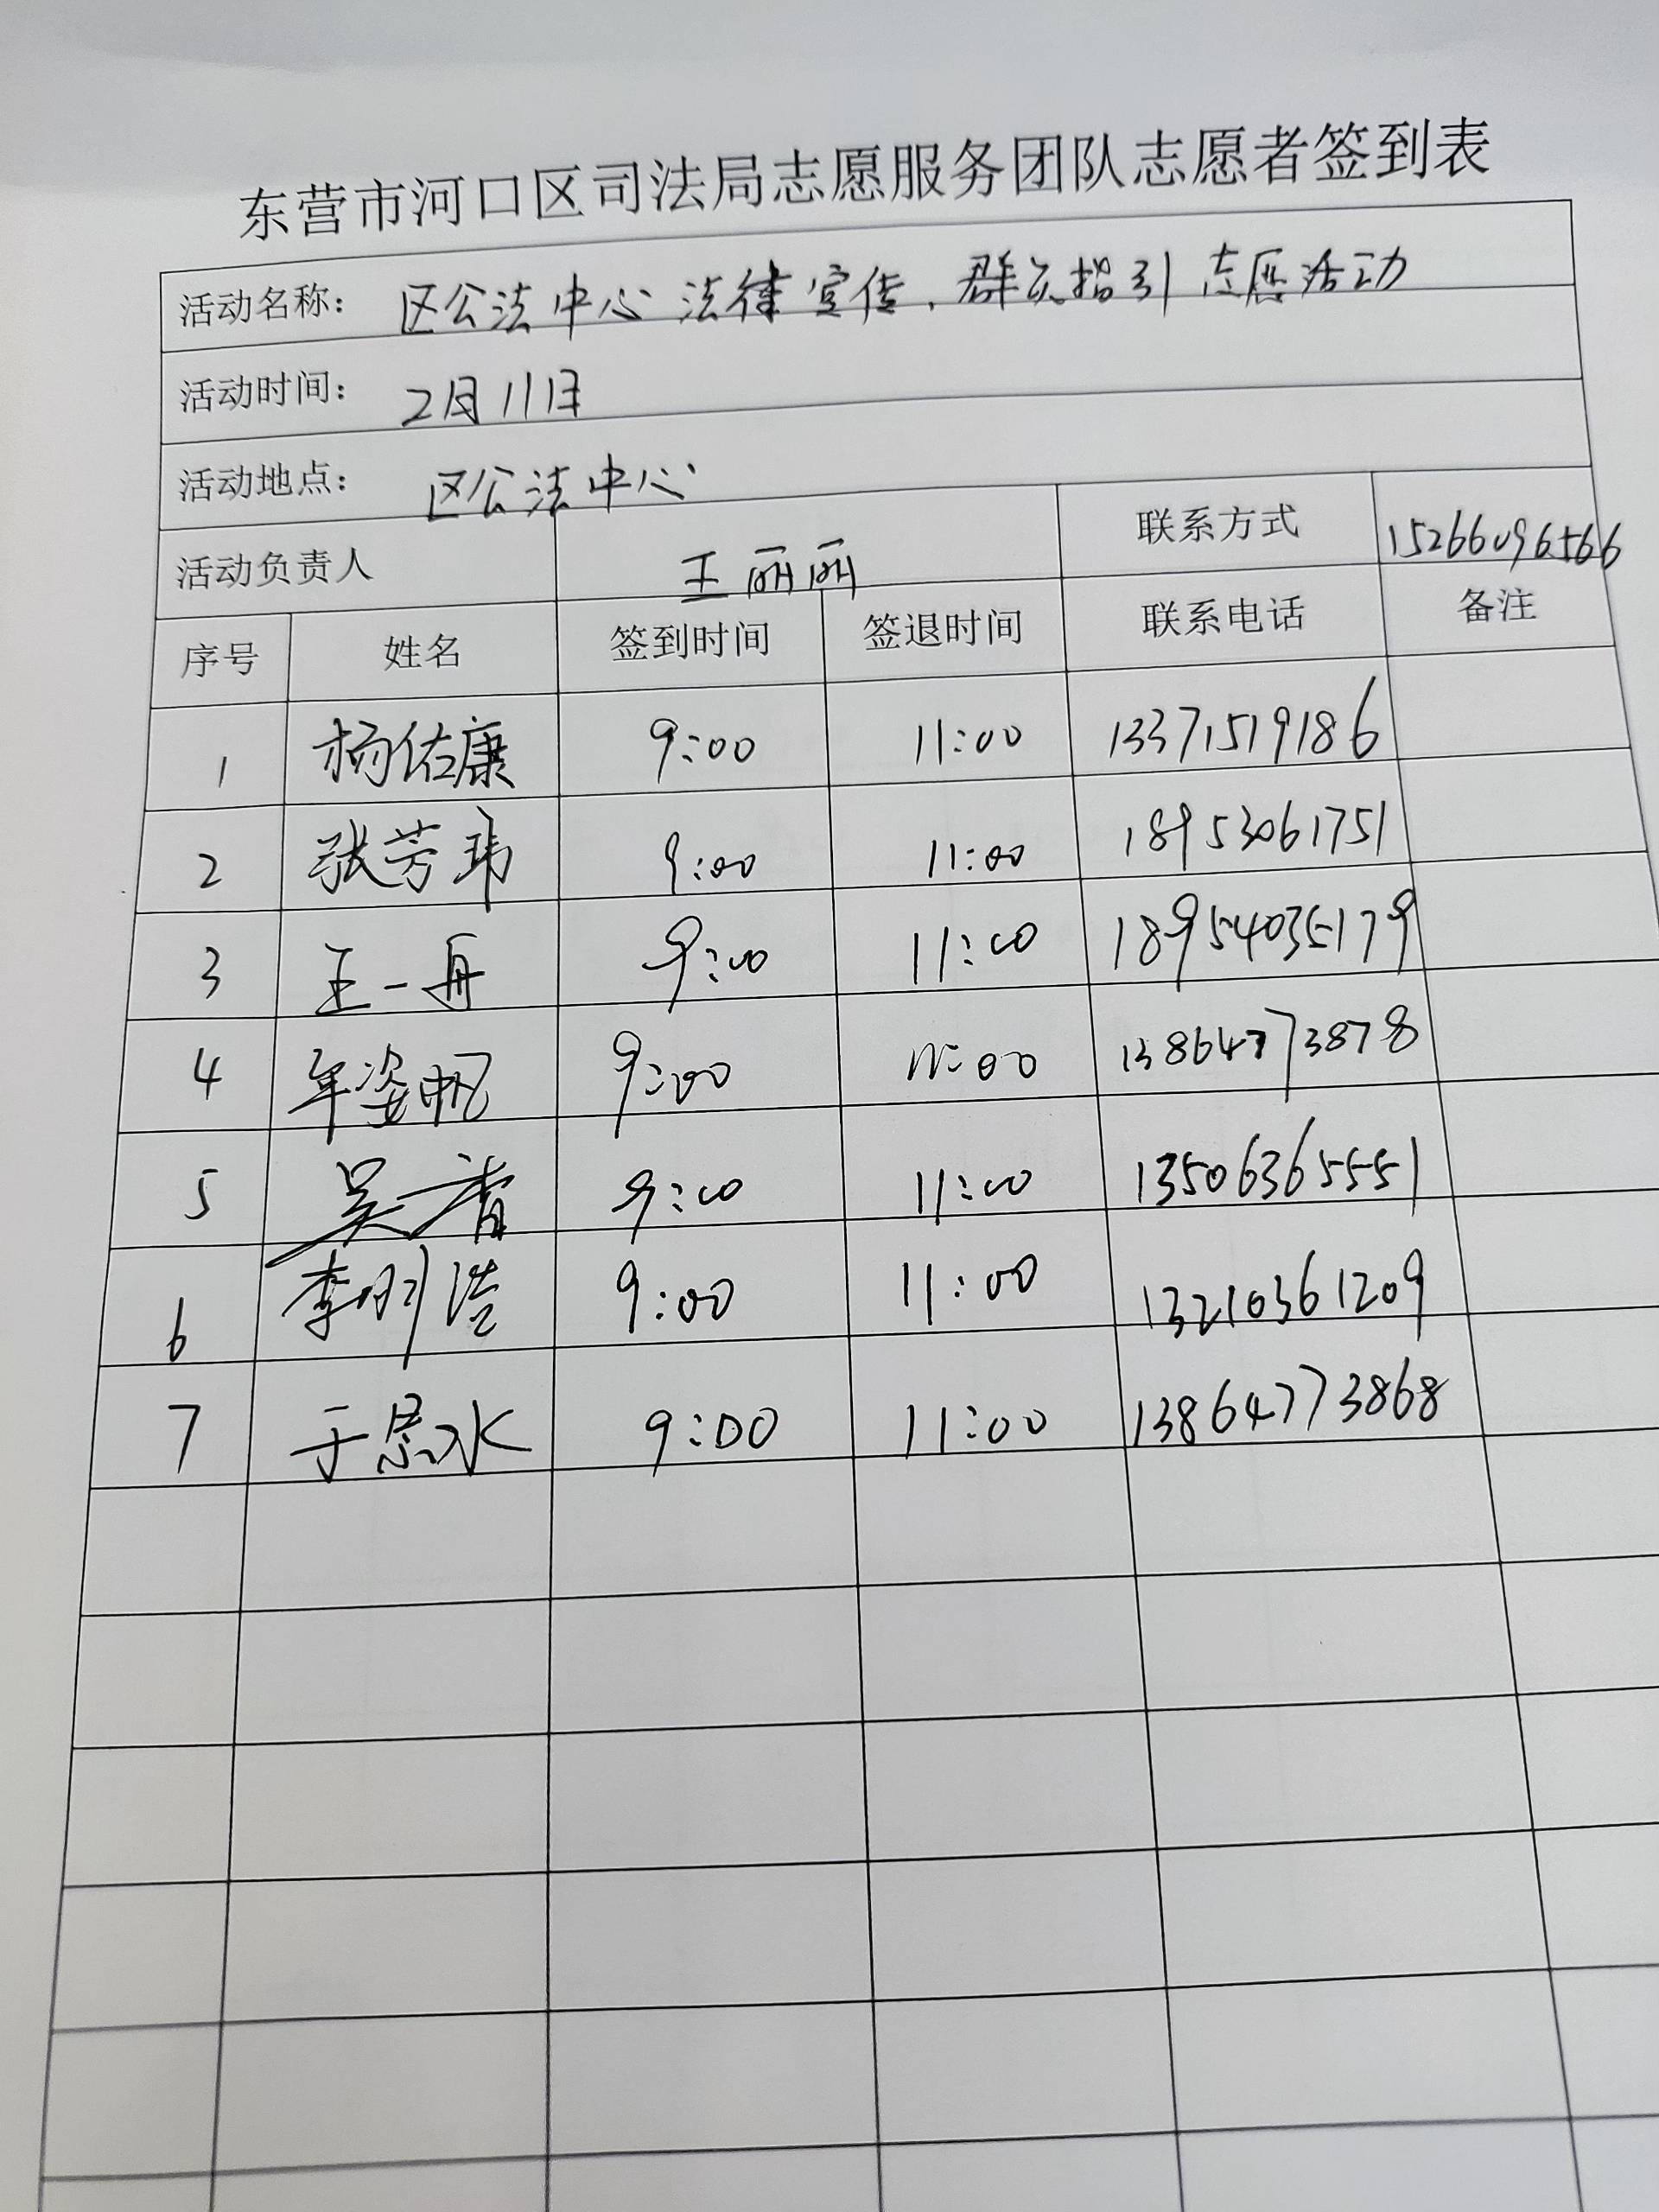 东营市河口区司法局志愿服务团队志愿者签到表
活动名称： 区公法中心法律宣传、群众指引志愿活动
活动时间： 2月11日
活动地点： 区公法中心
活动负责人 王丽丽 联系方式 15266096566
序号 姓名 签到时间 签退时间 联系电话 备注
1 杨佑康 9:00 11:00 13371519186
2 张芳玮 9:00 11:00 18953061751
3 王一舟 9:00 11:00 18954035179
4 年姿帆 9:00 11:00 13864773878
5 吴青 9:00 11:00 13506365551
6 李明浩 9:00 11:00 13210361209
7 于恩水 9:00 11:00 13864773868